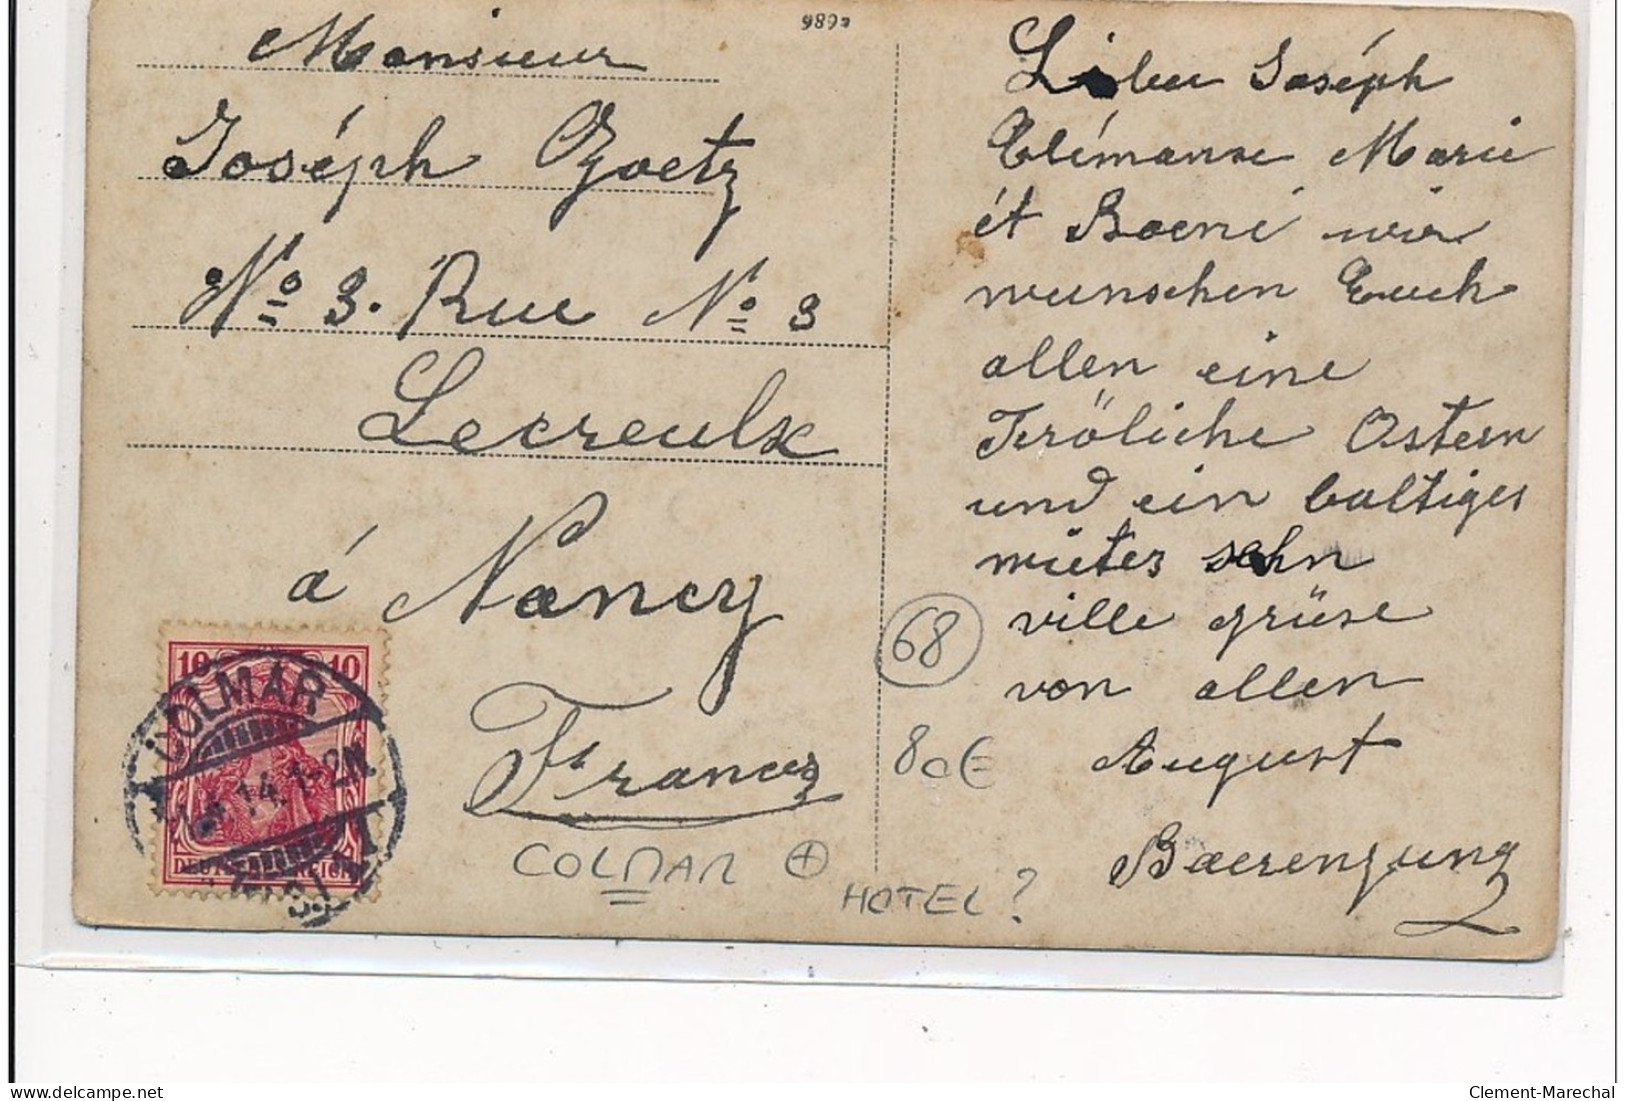 9892
Monsieur
Joséph Goetz
Nº 3. Rue Nº 3
Lecreulx
á Nancy
France
Lieber Joséph
Clémanse Marie
ét Boené wir
wunschen Euch
allen eine
Fröliche Ostern
und ein baltiges
wieter sehn
ville grüse
von allen
August
Baerenzung
10 10
DEUTSCHES REICH
COLMAR
14. 1-2N
68
80€
COLMAR
HOTEL?
Clement-Marechal
delcampe.net